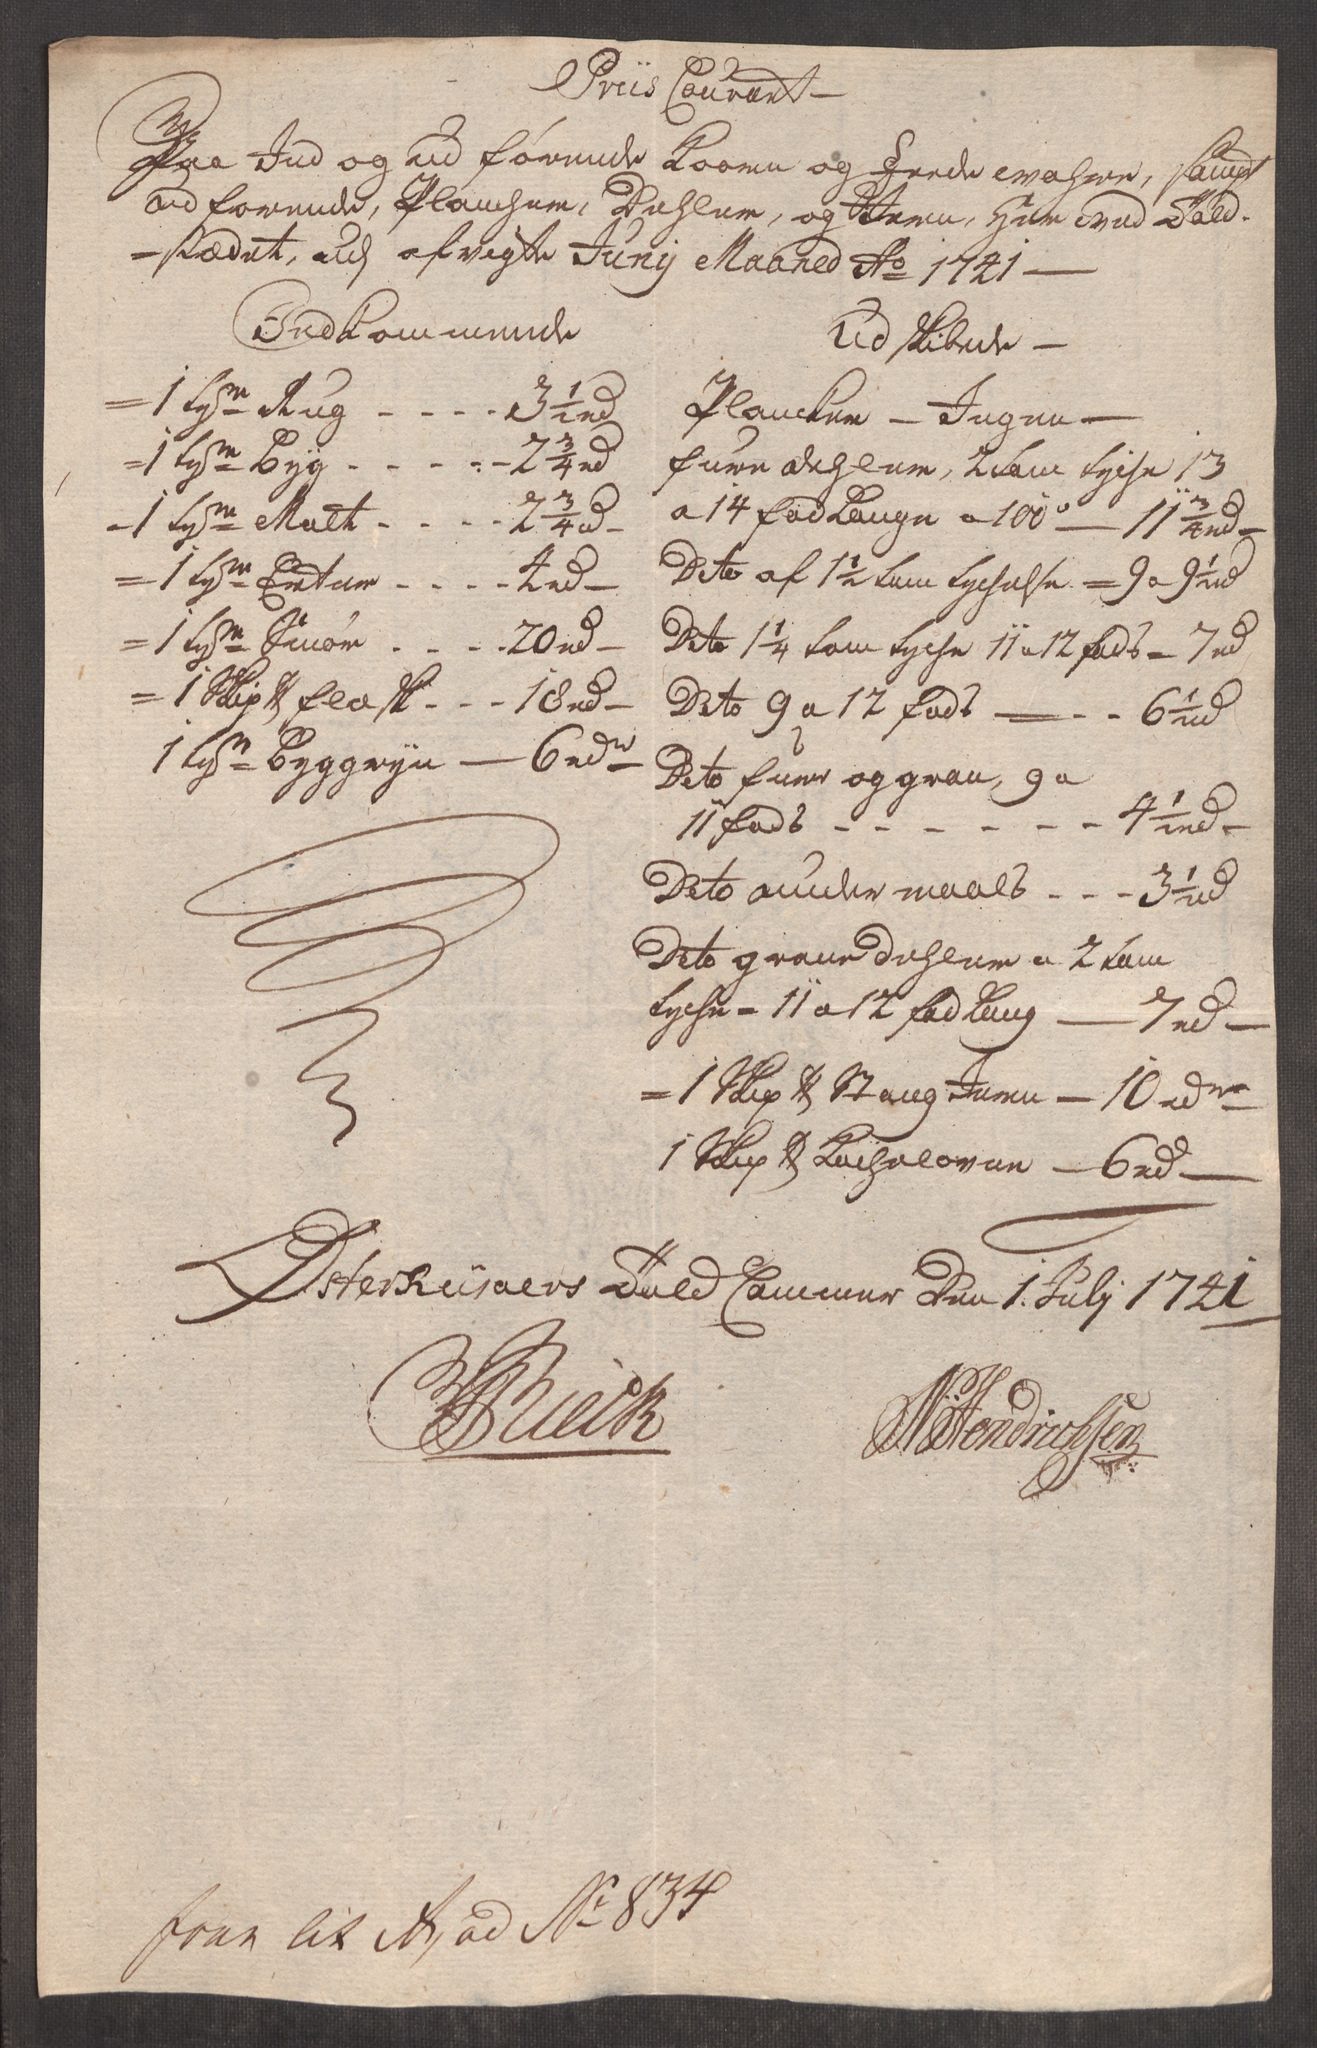 Priis Courant
Paa Ind og Ud førende Koorn og Feede wahre, sampt
udførende, Plancher, Dehler, og Jern, her ved Told-
stædet, udj afvigte Junij Maaned Ao 1741
Indkommende
= 1 tyne Rug - - - - 3 1/2 rd
= 1 tyne Byg - - - - 2 3/4 rd
- 1 tyne Malt - - - - 2 3/4 rd
= 1 tyne Erter - - - - 4 rd
= 1 tyne Smør - - - - 20 rd
= 1 Skip ℔ flesk - - - 18 rd
1 tyne Byggryn — 6 rdr
Udskibede
Plancker — Ingen
furre dehler, 2 tom tyche 13
a 14 fod Lange a 100 — 11 3/4 rd
Dito af 1 1/2 tom tychelse = 9 a 9 1/2 rd
Dito 1 1/4 tom tyche 11 a 12 fods - 7 rd
Dito 9 a 12 fods — - - 6 1/2 rd
Dito furr og gran, 9 a
11 fods - - - - - - 4 1/2 rd
Dito under maals - - - 3 1/2 rd
Dito grane Dehler a 2 tom
tyche - 11 a 12 fod lang — 7 rd
= 1 Skip ℔ Stang Jern — 10 rdr
1 Skip ℔ Kachelovne — 6 rd
Østerriisøers Told Cammer Den 1. Julij 1741
Rieck
N Hendrichsen
fran lit A, ad No 834